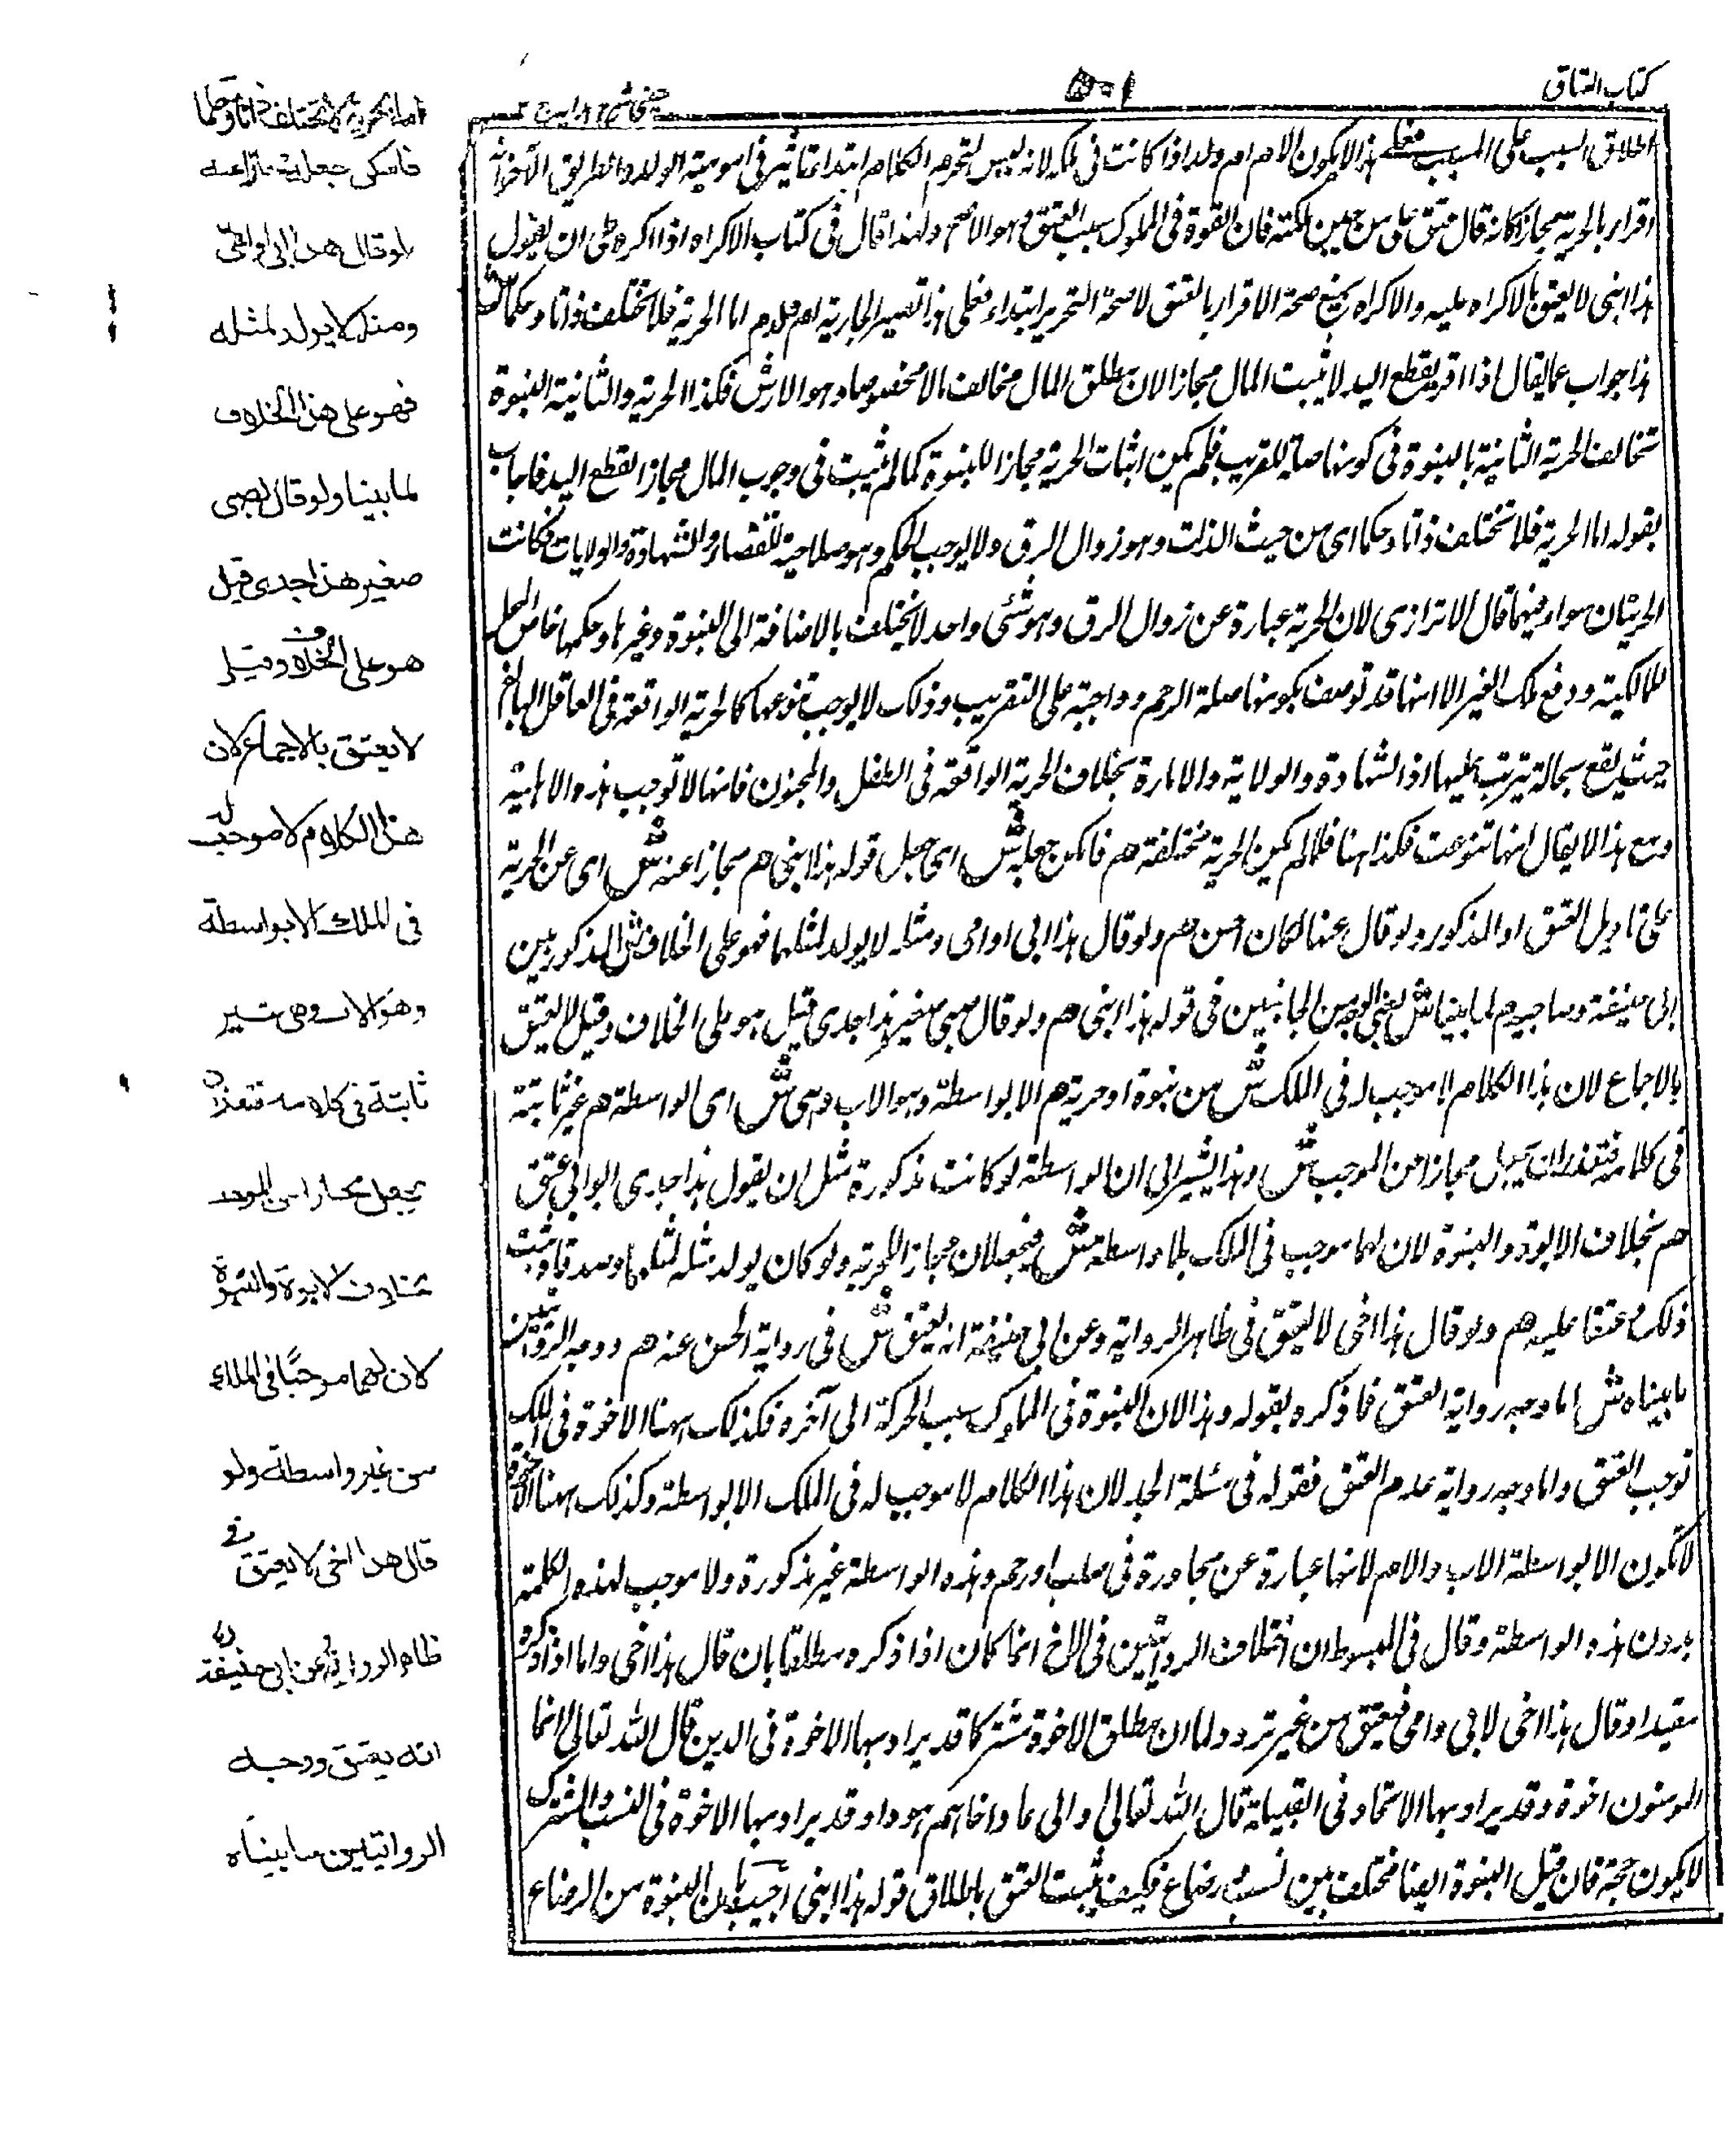 كتاب العتاق
٥٠١
عينى شرح هدايه ج ٢
اطلاق السبب على المسبب فعلى هذا لا يكون الام ام ولد اذا كانت في ملكه لانه ليس لتحرم الكلام ابتداء تاثير في امومية الولد والطريق الآخر انه
اقرار بالحرية مجازا كانه قال عتق على من حين ملكته فان القوة في المملوك سبب العتق وهو الاصح ولهذا قال في كتاب الاكراه اذا اكره على ان يقول
هذا ابنى لا يعتق بالاكراه عليه والاكراه يمنع صحة الاقرار بالعتق لا صحة التحرير ابتداء فعلى هذا تصير الجارية ام ولد م اما الحرية فلا تختلف ذاتا وحكما ش
هذا جواب عما يقال اذا اقر بقطع اليد لا يثبت المال مجازا لان مطلق المال مخالف مالا مخصوصا وهو الارش فكذا الحرية والثانية البنوة
تخالف الحرية الثانية بالبنوة في كونها صلة للقريب فلم يكن اثبات الحرية مجازا للبنوة كما لم يثبت في وجوب المال مجازا لقطع اليد فاجاب
بقوله اما الحرية فلا تختلف ذاتا وحكما اى من حيث الذات وهو زوال الرق ولا يوجب الحكم وهو صلاحية للقضاء والشهادة والولايات فكانت
الحريتان سواء فيهما قال الاترازى لان الحرية عبارة عن زوال الرق وهو شئ واحد لا يختلف بالاضافة الى البنوة وغيرها وحكمها خاص المحل
للمالكية ودفع ملك الغير الا انها قد توصف بكونها صلة الرحم وواجبة على التقريب وذلك لا يوجب تنوعها كالحرية الواقعة في العاقل البالغ
حيث يقع بحالة يترتب عليها اذ الشهادة والولاية والامارة بخلاف الحرية الواقعة في الطفل والمجنون فانها لا توجب هذه الاهلية
ومع هذا لا يقال انها تنوعت فكذا هنا فلما لم يكن الحرية مختلفة هم فامكن جعله ش اى جعل قوله هذا ابنى هم مجازا عنه ش اى عن الحرية
على تاويل العتق او المذكور ولو قال عنها لكان احسن هم ولو قال هذا ابى او امى ومثله لا يولد لمثلهما فهو على الخلاف ش المذكور بين
ابى حنيفة وصاحبيه م لما بينا ش يعنى الوجه من الجانبين في قوله هذا ابنى هم ولو قال صبى صغير هذا جدى قيل هو على الخلاف وقيل لا يعتق
بالاجماع لان هذا الكلام لا موجب له في الملك ش من بنوة او حرية هم الا بواسطة وهو الاب وهى ش اى الواسطة هم غير ثابتة
في كلامه فتعذر ان يجعل مجازا من الموجب ش وهذا يشير الى ان الواسطة لو كانت مذكورة مثل ان يقول هذا جدى ابو ابى عتق
هم بخلاف الابوة والبنوة لان لهما موجب في الملك بلا واسطة ش فيجعلان مجازا للحرية ولو كان يولد مثله لمثلهما وصدقا ويثبت
ذلك م عتقا عليه هم ولو قال هذا اخى لا يعتق في ظاهر الرواية وعن ابى حنيفة انه يعتق ش في رواية الحسن عنه هم ووجه الروايتين
ما بيناه ش اما وجه رواية العتق فما ذكره بقوله وهذا لان البنوة في المملوك سبب الحركة الى آخره فكذلك ههنا الاخوة في الملك
توجب العتق واما وجه رواية عدم العتق فقوله في مسئلة الجد لان هذا الكلام لا موجب له في الملك الا بواسطة وكذلك ههنا الاخوة
لا تكون الا بواسطة الاب والام لانها عبارة عن مجاورة في صلب او رحم وهذه الواسطة غير مذكورة ولا موجب لهذه الكلمة
بدون هذه الواسطة وقال في المبسوط ان اختلاف الروايتين في الاخ انما كان اذا ذكره مطلقا بان قال هذا اخى واما اذا ذكره
مقيدا وقال هذا اخى لابى وامى فيعتق من غير تردد ولما ان مطلق الاخوة مشتركا قد يراد بها الاخوة في الدين قال الله تعالى انما
المومنون اخوة وقد يراد بها الاتحاد في القبيلة قال الله تعالى والى عاد اخاهم هودا وقد يراد بها الاخوة في النسب والمشترك
لا يكون حجة فان قيل البنوة ايضا مختلف بين نسب ورضاع فكيف يثبت العتق باطلاق قوله هذا ابنى اجيب بان البنوة من الرضاع
اما الحرية لا تختلف ذاتا وحكما
فامكن جعله مجازا عنه
ولو قال هذا ابى او امى
ومثله لا يولد لمثله
فهو على هذا الخلاف
لما بينا ولو قال لصبى
صغير هذا جدى قيل
هو على الخلاف وقيل
لا يعتق بالاجماع لان
هذا الكلام لا موجب له
فى الملك الا بواسطة
وهو الاب وهى غير
ثابتة فى كلامه فتعذر ان
يجعل مجازا من الموجب
بخلاف الابوة والبنوة
لان لهما موجبًا فى الملك
من غير واسطة ولو
قال هذا اخى لا يعتق فى
ظاهر الرواية وعن ابى حنيفة رح
انه يعتق ووجه
الروايتين ما بيناه